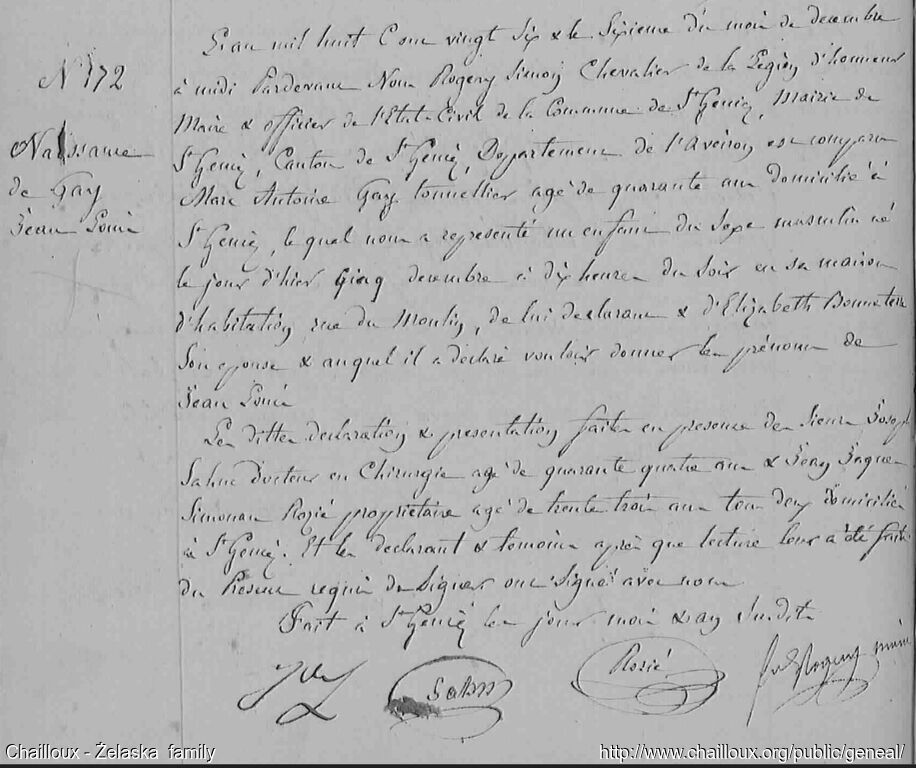 N° 172
Naissance
de Gay
Jean Louis
L'an mil huit Cent vingt Six & le Sixieme du mois de decembre
à midi Pardevant Nous Rogery Simon Chevalier de la Légion d'honneur
Maire & officier de l'Etat Civil de la Commune de St Geniez, Mairie de
St Geniez, Canton de St Geniez, Departement de l'Aveiron est comparu
Marc Antoine Gay tonnellier agé de quarante ans domicilié à
St Geniez, le quel nous a representé un enfant du Sexe masculin né
le jour d'hier Cinq decembre à dix heures du Soir en sa maison
d'habitation rue du Moulin, de lui declarant & d'Elizabeth Bonnaterre
Son epouse & auquel il a déclaré vouloir donner les prénoms de
Jean Louis
Les dittes declaration & presentation faites en presence des Sieurs Joseph
docteur en Chirurgie agé de quarante quatre ans & Jean Jaques
Rozié propriétaire agé de trente trois ans tous deux Domiciliés
à St Geniez. Et les declarant & temoins après que lecture leur a été faite
du Present requis de Signer ont Signé avec nous
Fait à St Geniez les jour mois & an Susdits
Rozié
Rogery maire
Chailloux - Żelaska family
http://www.chailloux.org/public/geneal/